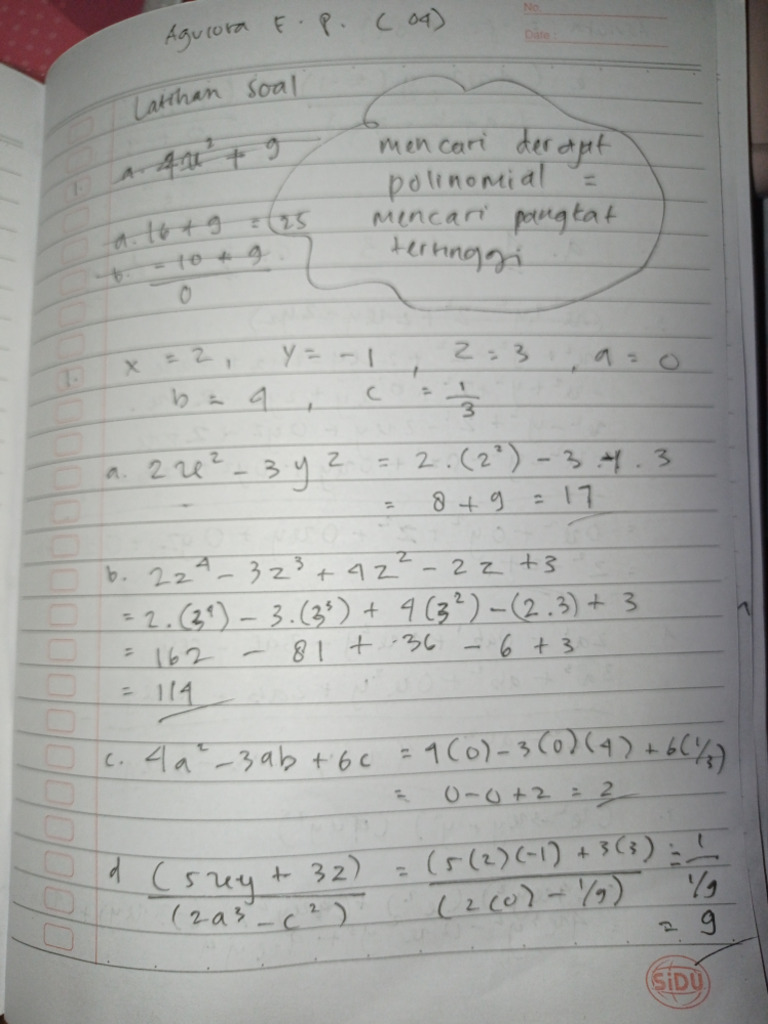 Agucora F. P. (04)
No.
Date :
Latihan soal
1. a. 4x² + 9
mencari derajat
polinomial =
mencari pangkat
tertinggi
a. 16 + 9 = 25
b. -10 + 9
0
1. x = 2, y = -1, z = 3, a = 0
b = 4, c = 1/3
a. 2x² - 3yz = 2.(2²) - 3.-1.3
= 8 + 9 = 17
b. 2z⁴ - 3z³ + 4z² - 2z + 3
= 2.(3⁴) - 3.(3³) + 4(3²) - (2.3) + 3
= 162 - 81 + 36 - 6 + 3
= 114
c. 4a² - 3ab + 6c = 4(0) - 3(0)(4) + 6(1/3)
= 0 - 0 + 2 = 2
d (5xy + 3z) / (2a³ - c²) = (5(2)(-1) + 3(3)) / (2(0) - 1/9) = 1 / 1/9
= 9
SiDU